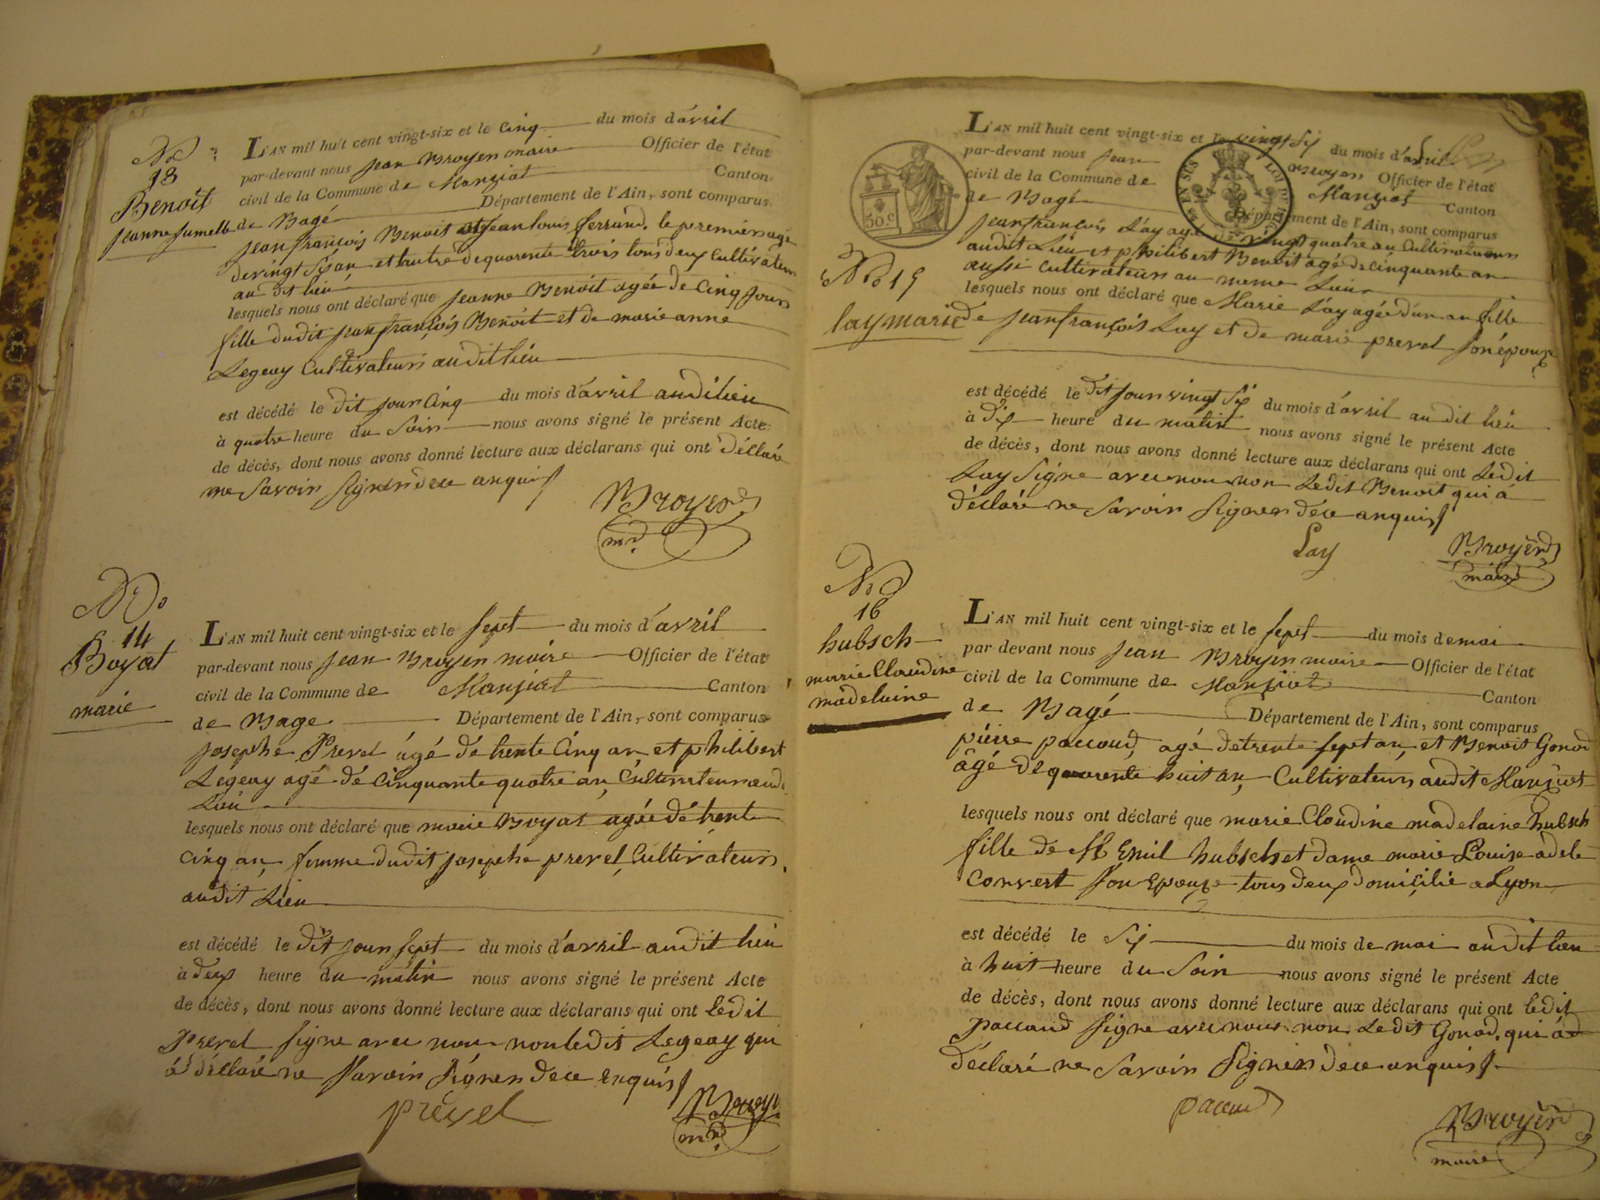 No
13
Benoit
jeanne jumelle
L'AN mil huit cent vingt-six et le cinq du mois d'avril
par-devant nous jean Broyer maire Officier de l'état
civil de la Commune de Manziat Canton
de Bagé Département de l'Ain, sont comparus
jean françois Benoit et jean louis ferrand, le premier âgé
de vingt six an et l'autre de quarente trois tous deux cultivateurs
au dit lieu
lesquels nous ont déclaré que jeanne Benoit agée de cinq jours
fille dudit jean françois Benoit et de marie anne
Legeay Cultivateurs audit lieu
est décédé le dit jour cinq du mois d'avril audit lieu
à quatre heure du Soir nous avons signé le présent Acte
de décès, dont nous avons donné lecture aux déclarans qui ont déclaré
ne Savoir Signer de ce enquis
Broyer
mre
No
14
Boyat
marie
L'AN mil huit cent vingt-six et le sept du mois d'avril
par-devant nous jean Broyer maire Officier de l'état
civil de la Commune de Manziat Canton
de Bage Département de l'Ain, sont comparus
josephe Prevel âgé dé trente cinq an et philibert
Legeay agé dé cinquante quatre an, Cultivateurs audi
Lieu
lesquels nous ont déclaré que marie Boyat agée dé trente
cinq an, femme dudit josephe prevel, Cultivateurs
audit Lieu
est décédé le dit jour sept du mois d'avril audit lieu
à deux heure du matin nous avons signé le présent Acte
de décès, dont nous avons donné lecture aux déclarans qui ont ledit
Prevel signe avec nous non ledit Legeay qui
à déclaré ne Savoir Signer de ce enquis
prevel
Broyer
mre
50 c
No 15
lay marie
L'AN mil huit cent vingt-six et le vingt six du mois d'avril
par-devant nous jean Broyer Officier de l'état
civil de la Commune de Manziat Canton
de Bagé Département de l'Ain, sont comparus
jean françois Lay agé vingt quatre an Cultivateurs
audit Lieu et philibert Benoit agé de cinquante an
aussi cultivateurs au meme Lieu
lesquels nous ont déclaré que Marie Lay agée d'un an fille
de jean françois Lay et de marie prevel son épouze
est décédé le dit jour vingt six du mois d'avril audit lieu
à dix heure du matin nous avons signé le présent Acte
de décès, dont nous avons donné lecture aux déclarans qui ont Ledit
Lay Signe avec nous non Ledit Benoit qui à
déclaré ne Savoir Signer de ce enquis
Lay
Broyer
maire
No
16
hubsch
marie Claudine
madelaine
L'AN mil huit cent vingt-six et le sept du mois de mai
par devant nous jean Broyer maire Officier de l'état
civil de la Commune de Manziat Canton
de Bagé Département de l'Ain, sont comparus
pierre paccoud, agé de trente sept an, et Benoit Gonod
âgé de quarente huit an, Cultivateurs audit Manziat
lesquels nous ont déclaré que marie Claudine madelaine hubsch
fille de Mr Emil hubsch et dame marie Louise adele
Convert son Epouze tous deux domicilié a Lyon
est décédé le Six du mois de mai audit lieu
à huit heure du Soir nous avons signé le présent Acte
de décès, dont nous avons donné lecture aux déclarans qui ont ledit
paccoud signe avec nous non Ledit Gonod, qui à
déclaré ne Savoir Signer de ce enquis
paccoud
Broyer
maire